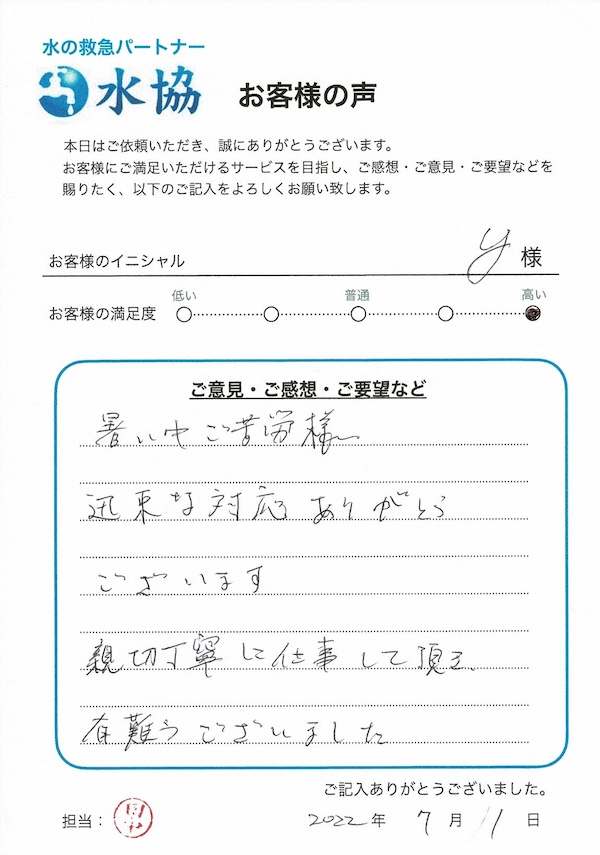 水の救急パートナー
水協 お客様の声
本日はご依頼いただき、誠にありがとうございます。
お客様にご満足いただけるサービスを目指し、ご感想・ご意見・ご要望などを
賜りたく、以下のご記入をよろしくお願い致します。
お客様のイニシャル y 様
低い 普通 高い
お客様の満足度
ご意見・ご感想・ご要望など
暑い中ご苦労様
迅束な対応ありがとう
ございます
親切丁寧に仕事して頂き、
有難うございました
ご記入ありがとうございました。
担当： 2022年 7月 11日